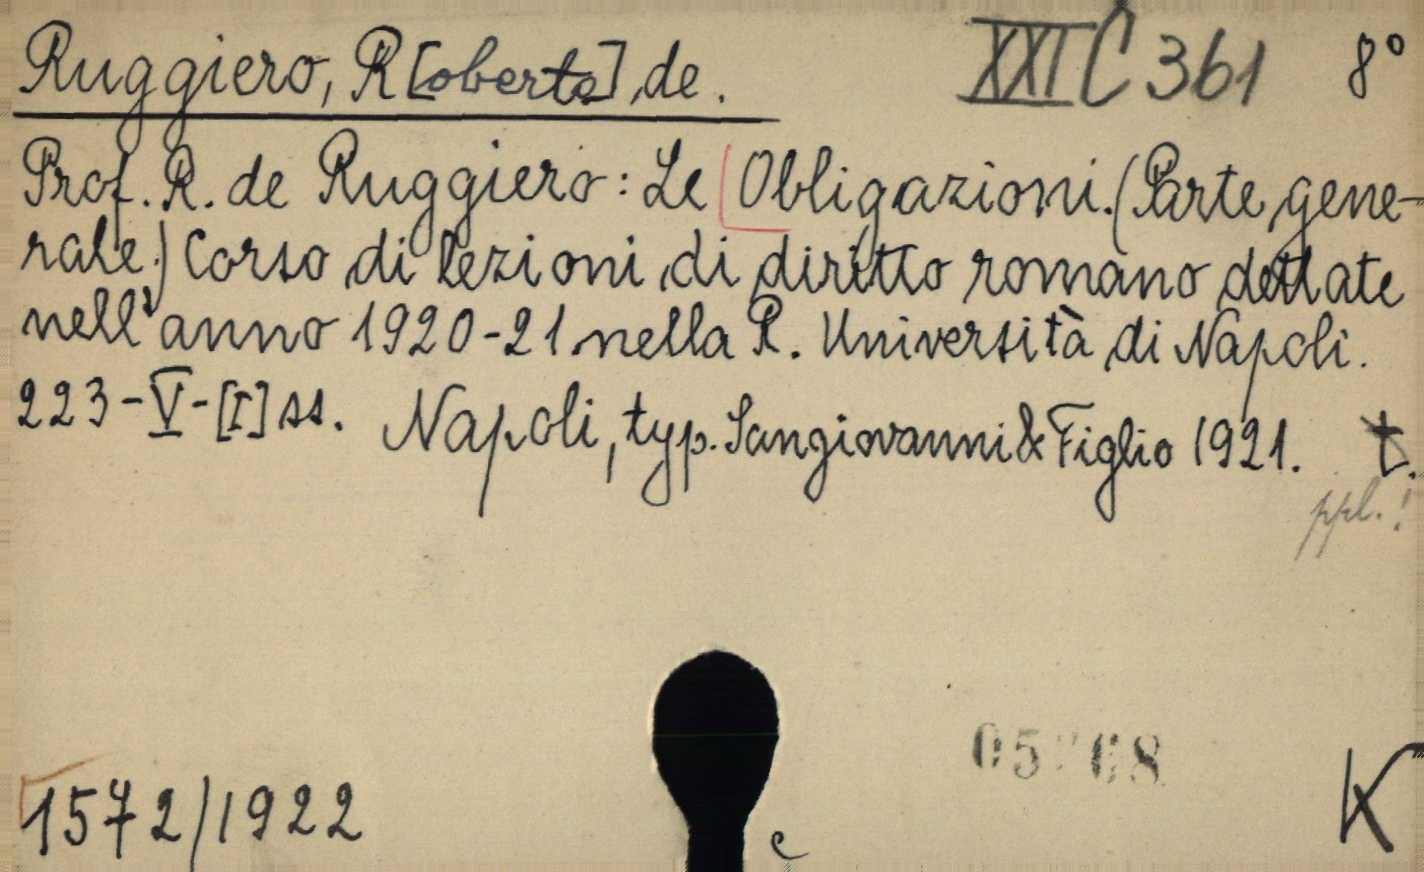 Ruggiero, R[oberto], de. XXI C 361 8°
Prof. R. de Ruggiero: Le Obligazioni. (Parte gene-
rale.) Corso di lezioni di diritto romano dettate
nell'anno 1920-21 nella R. Università di Napoli.
223-V-[I] ss. Napoli, typ. Sangiovanni & Figlio 1921. t.
ppl.!
1572/1922
e
K